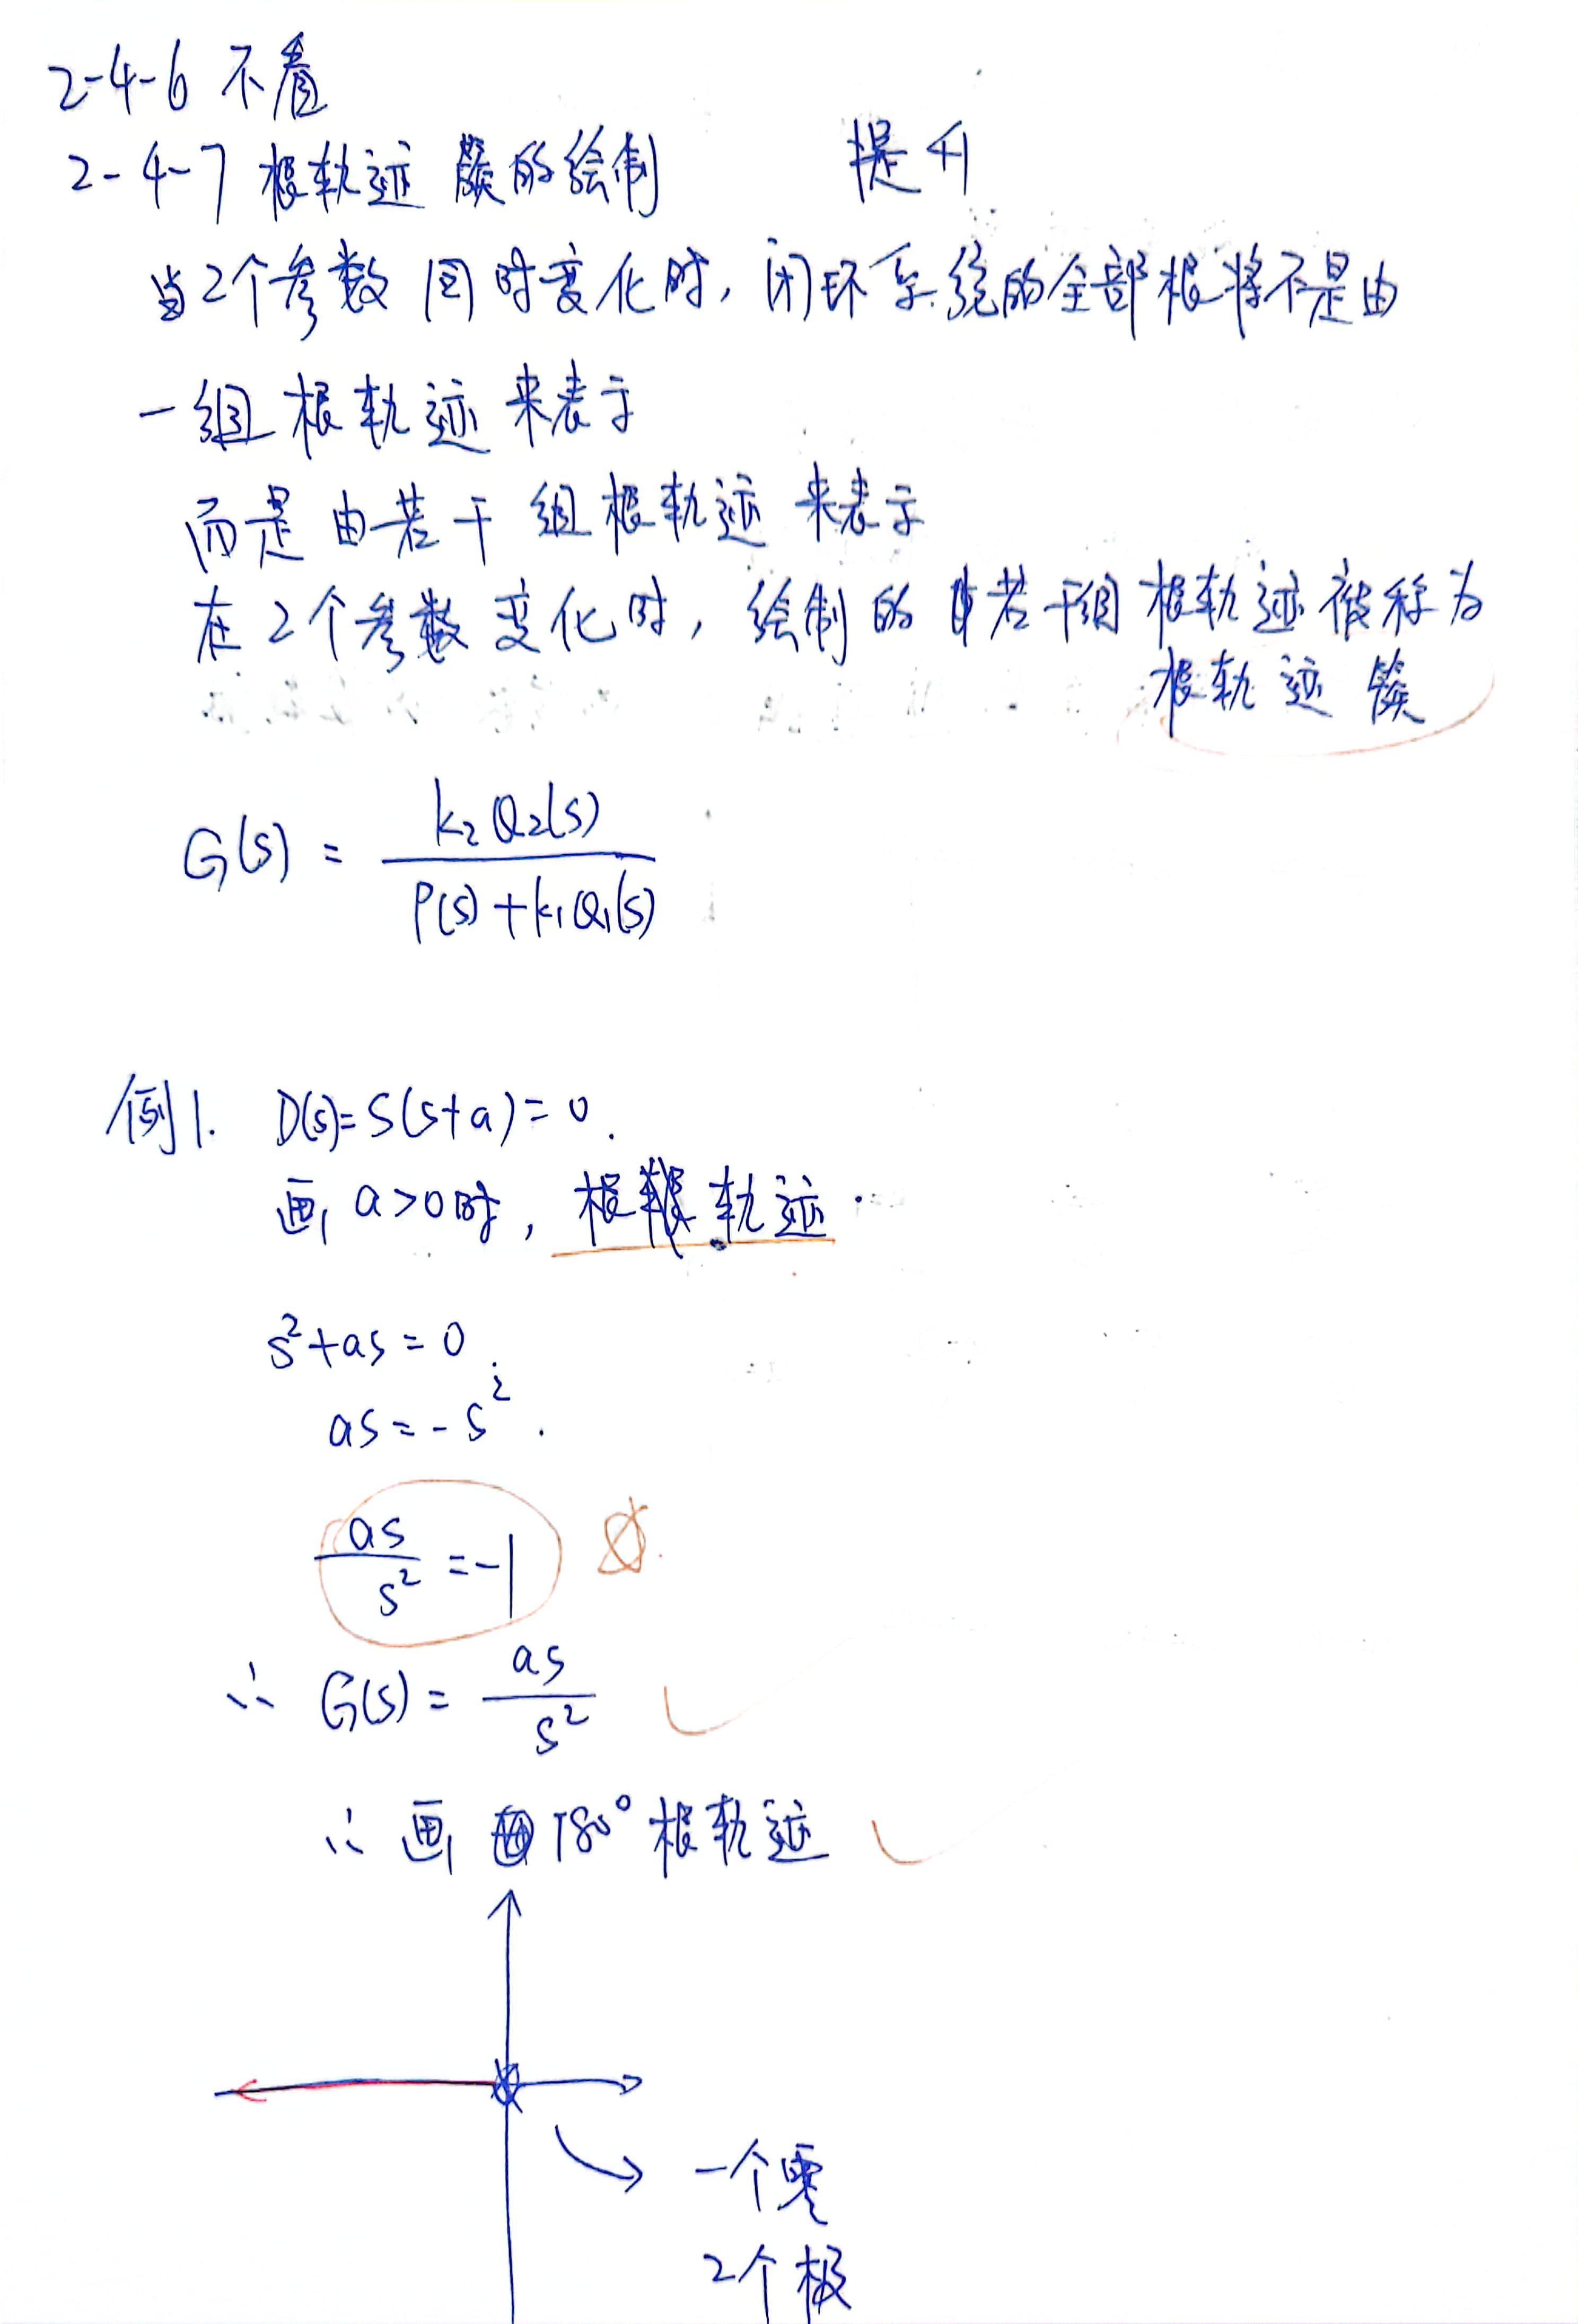 2-4-6 不看
2-4-7 根轨迹簇的绘制 提升
当2个参数同时变化时,闭环系统的全部根将不是由
一组根轨迹来表示
而是由若干组根轨迹来表示
在2个参数变化时,绘制的若干组根轨迹被称为
根轨迹簇
G(s) = k₂Q₂(s) / P(s)+k₁Q₁(s)
例1. D(s)=s(s+a)=0.
画a>0时,根轨迹.
s²+as=0.
as=-s².
as/s² =-1
∴ G(s) = as/s²
∴ 画180°根轨迹
一个零
2个极